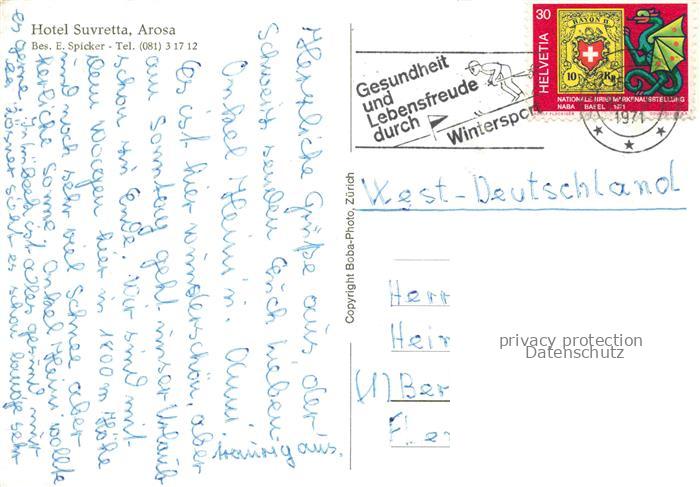 Hotel Suvretta, Arosa
Bes. E. Spicker - Tel. (081) 3 17 12
Herzliche Grüße aus der
Schweiz senden Euch lieben
Onkel Heini u. Anni
Es ist hier wunderschön, aber
am Sonntag geht unser Urlaub
zu Ende. Wir sind mit
dem Wagen hier in 1800 m Höhe
und noch sehr viel Schnee aber
herrliche Sonne. Onkel Heini wollte
es gerne
traurig aus.
Copyright Boba-Photo, Zürich
Gesundheit
und
Lebensfreude
durch
Wintersport
30
HELVETIA
RAYON II
10 Rp
NATIONALE BRIEFMARKENAUSSTELLUNG
NABA BASEL 1971
1971
West-Deutschland
Herr
Hein
(1) Ber
privacy protection
Datenschutz